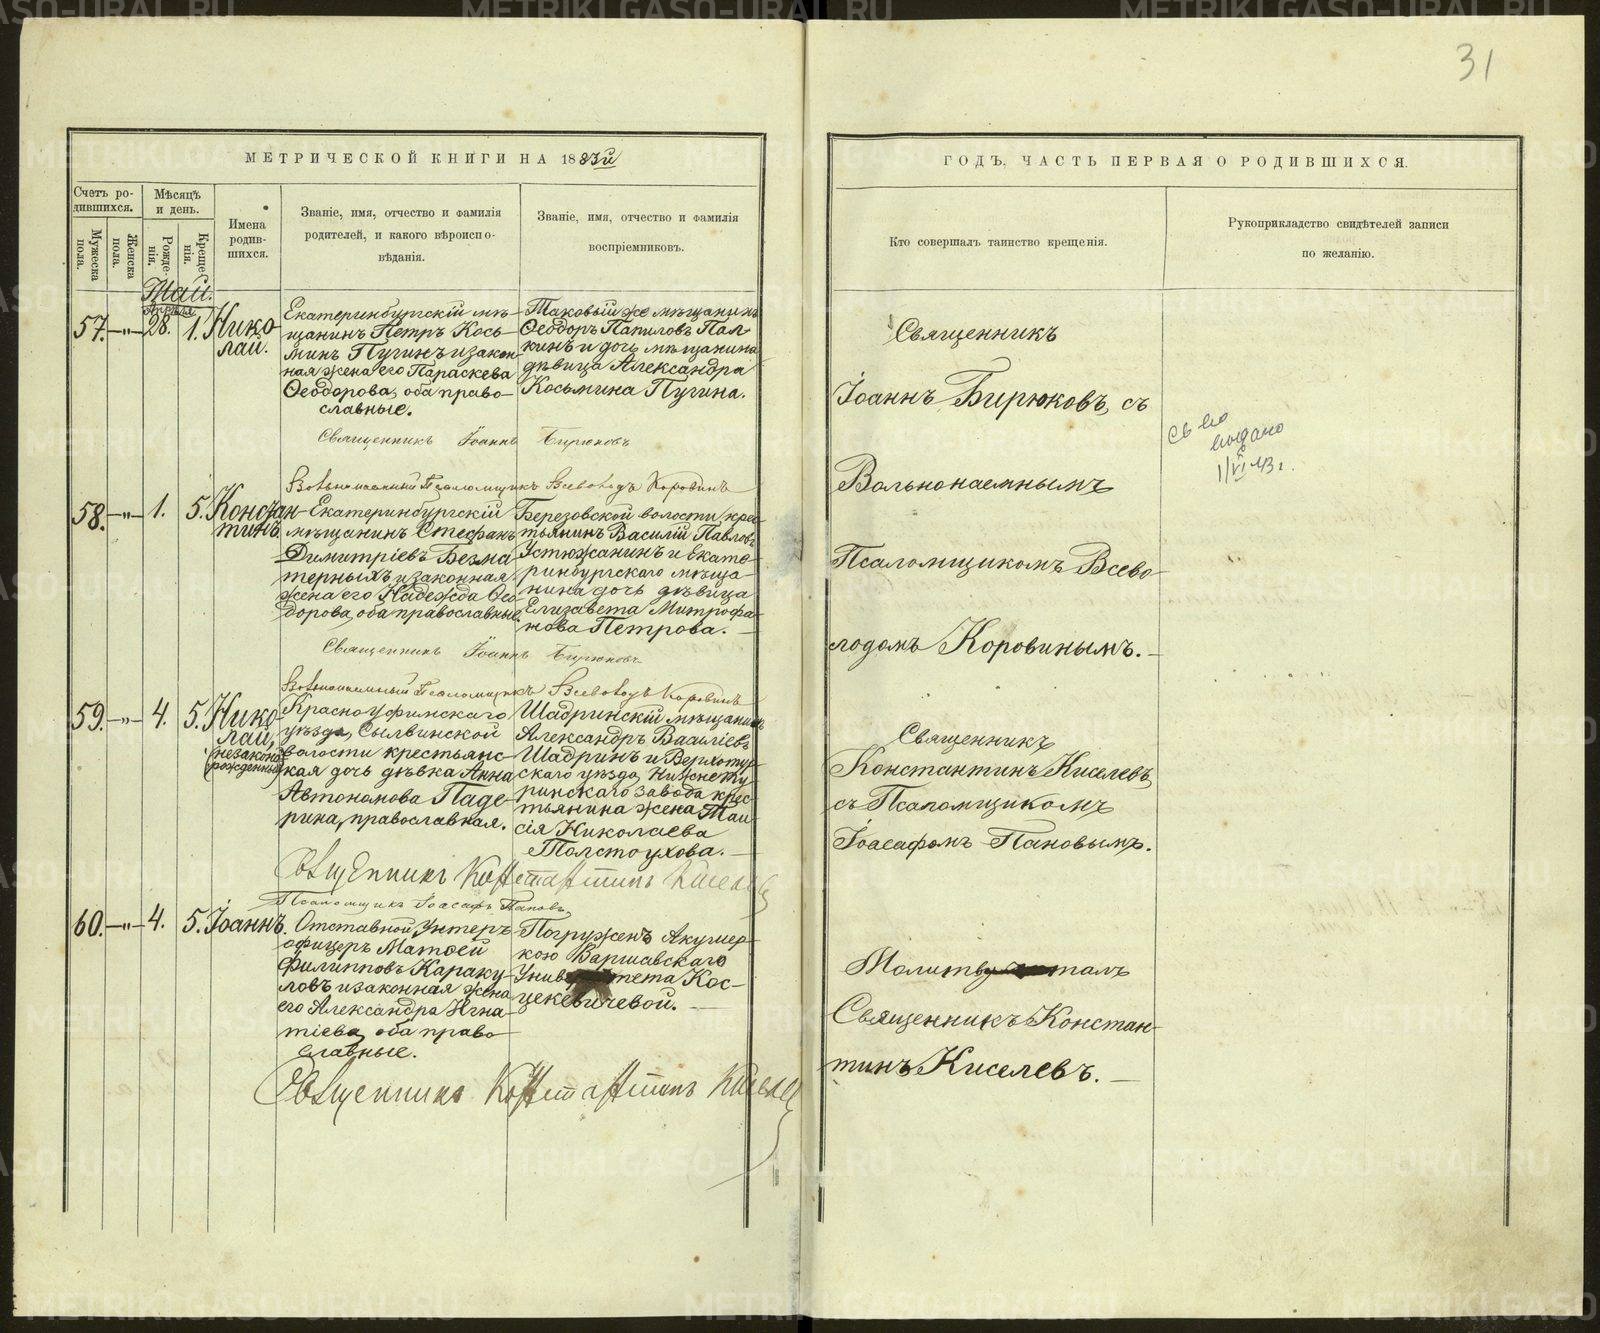 31
МЕТРИЧЕСКОЙ КНИГИ НА 1883й
Счетъ ро-
дившихся.
Мужеска
пола.
Женска
пола.
Мѣсяцъ
и день.
Рожде-
нія.
Креще-
нія.
Имена
родив-
шихся.
Званіе, имя, отчество и фамилія
родителей, и какого вѣроиспо-
вѣданія.
Званіе, имя, отчество и фамилія
воспріемниковъ.
Май.
Апрѣля
57. —"— 28. 1. Нико-
лай.
Екатеринбургскій мѣ-
щанинъ Петръ Кось-
минъ Пугинъ и закон-
ная жена его Параскева
Ѳеодорова, оба право-
славные.
Таковый же мѣщанинъ
Ѳеодоръ Папиловъ Пал-
кинъ и дочь мѣщанина
дѣвица Александра
Косьмина Пугина.
Священникъ Іоаннъ Бирюковъ
Вольнонаемный Псаломщикъ Всеволодъ Коровинъ
58. —"— 1. 5. Констан-
тинъ.
Екатеринбургскій
мѣщанинъ Стефанъ
Димитріевъ Безма-
терныхъ и законная
жена его Надежда Ѳео-
дорова, оба православные.
Березовской волости крес-
тьянинъ Василій Павловъ
Устюжанинъ и Екате-
ринбургскаго мѣща-
нина дочь дѣвица
Елизавета Митрофа-
нова Петрова.
Священникъ Іоаннъ Бирюковъ
Вольнонаемный Псаломщикъ Всеволодъ Коровинъ
59. —"— 4. 5. Нико-
лай,
(незаконно-
рожденный)
Красноуфимскаго
уѣзда, Сылвинской
волости крестьянс-
кая дочь дѣвка Анна
Автономова Паде-
рина, православная.
Шадринскій мѣщанинъ
Александръ Василіевъ
Шадринъ и Верхотур-
скаго уѣзда, Нижнету-
ринскаго завода крес-
тьянина жена Таи-
сія Николаева
Толстоухова.
Священникъ Константинъ Киселевъ
Псаломщикъ Іоасафъ Пановъ
60. —"— 4. 5. Іоаннъ.
Отставной унтеръ
офицеръ Матѳей
Филипповъ Караку-
ловъ и законная жена
его Александра Игна-
тіева, оба право-
славные.
Погруженъ Акушер-
кою Варшавскаго
Университета Кос-
цекевичевой.
Священникъ Константинъ Киселевъ
ГОДЪ, ЧАСТЬ ПЕРВАЯ О РОДИВШИХСЯ.
Кто совершалъ таинство крещенія.
Рукоприкладство свидѣтелей записи
по желанію.
Священникъ
Іоаннъ Бирюковъ, съ
Вольнонаемнымъ
Псаломщикомъ Всево-
лодомъ Коровинымъ.
св-во
выдано
1/VI 43 г.
Священникъ
Константинъ Киселевъ,
съ Псаломщикомъ
Іоасафомъ Пановымъ.
Молитву читалъ
Священникъ Констан-
тинъ Киселевъ.
METRIKI.GASO-URAL.RU